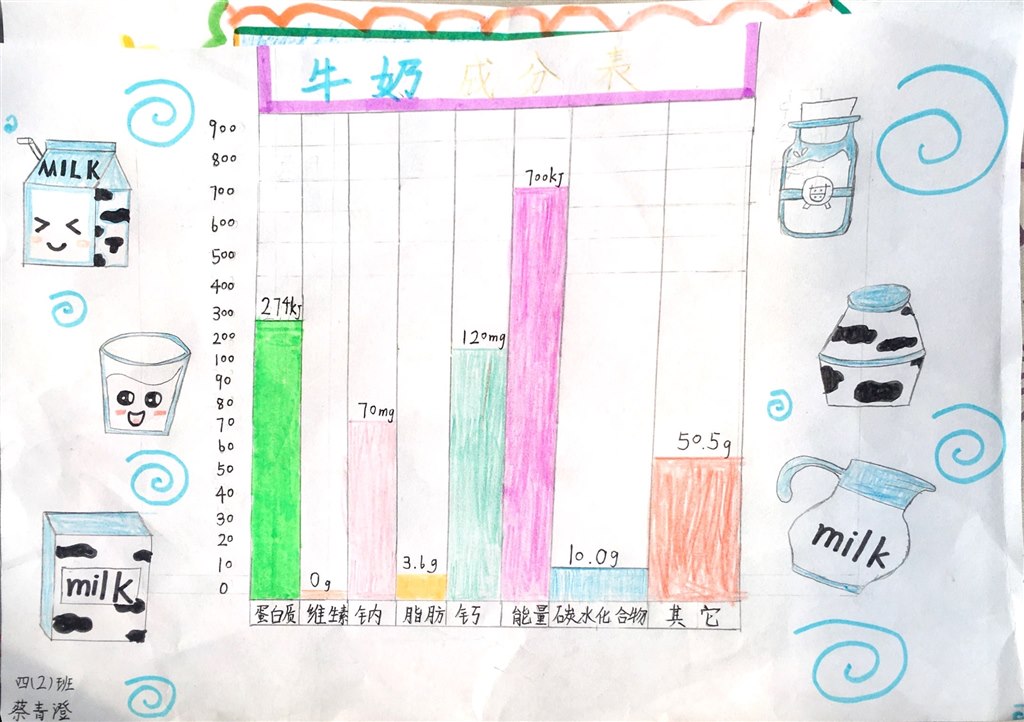 牛奶成分表
900
800
700
600
500
400
300
200
100
90
80
70
60
50
40
30
20
10
0
274kJ
0g
70mg
3.6g
120mg
700kJ
10.0g
50.5g
蛋白质 维生素 钠 脂肪 钙 能量 碳水化合物 其它
MILK
milk
milk
四(2)班
蔡青澄